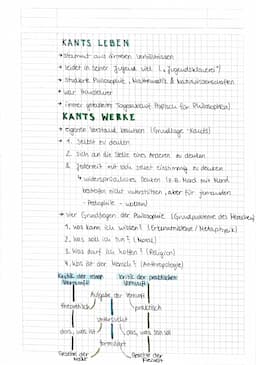 KANTS LEBEN
• stammt aus ärmeren Verhältnissen
• leidet in seiner Jugend viel („Jugendsklaverei“)
• studierte Philosophie, Mathematik & Naturwissenschaften
• war Hauslehrer
• immer geregelter Tagesablauf (typisch für Philosophen)
KANTS WERKE
• eigenen Verstand benutzen (Grundlage - Kants)
1. Selbst zu denken
2. sich an die Stelle eines Anderen zu denken
3. jederzeit mit sich selbst einstimmig zu denken
↳ widerspruchsloses Denken (z.B. Mord mit Mord
bestrafen nicht unterstützen, aber für jemanden
wollen)
• vier Grundfragen der Philosophie (Grundprobleme des Menschen)
1. was kann ich wissen? (Erkenntnistheorie / Metaphysik)
2. was soll ich tun? (Moral)
3. Was darf ich hoffen? (Religion)
4. Was ist der Mensch? (Anthropologie)
Kritik der reinen Vernunft
Kritik der praktischen Vernunft
Aufgabe der Vernunft
theoretisch praktisch
untersucht
das, was ist das, was sein soll
formuliert
Gesetze der Natur
Gesetze der Freiheit